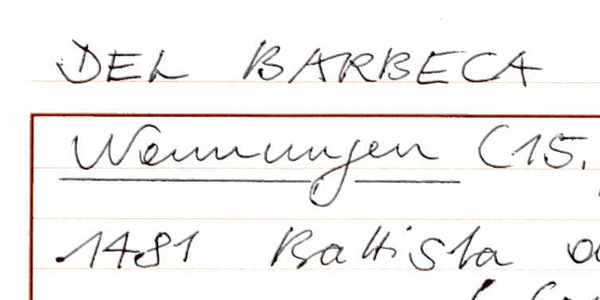 DEL BARBECA
Nennungen (15.
1481 Battista